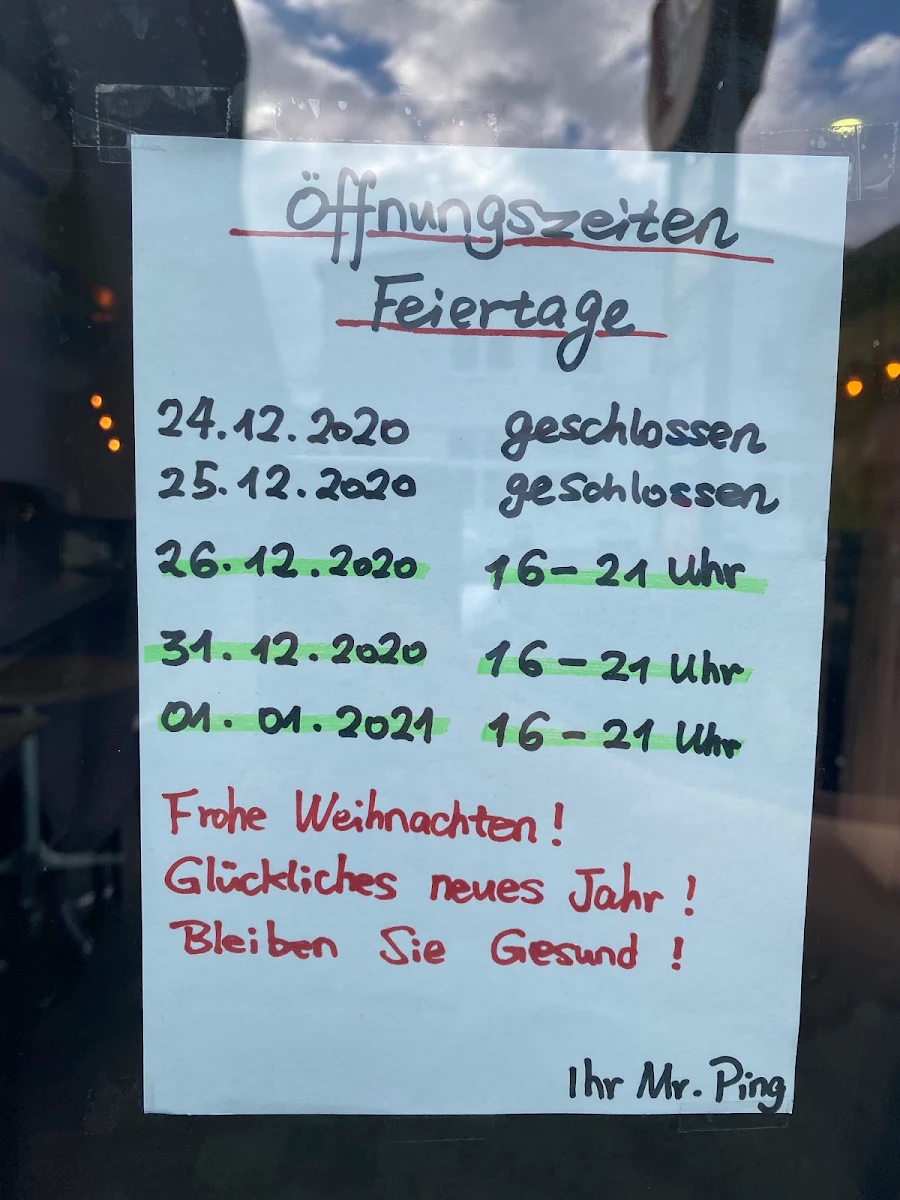 Öffnungszeiten
Feiertage
24.12.2020 geschlossen
25.12.2020 geschlossen
26.12.2020 16-21 Uhr
31.12.2020 16-21 Uhr
01.01.2021 16-21 Uhr
Frohe Weihnachten!
Glückliches neues Jahr!
Bleiben Sie Gesund!
Ihr Mr. Ping